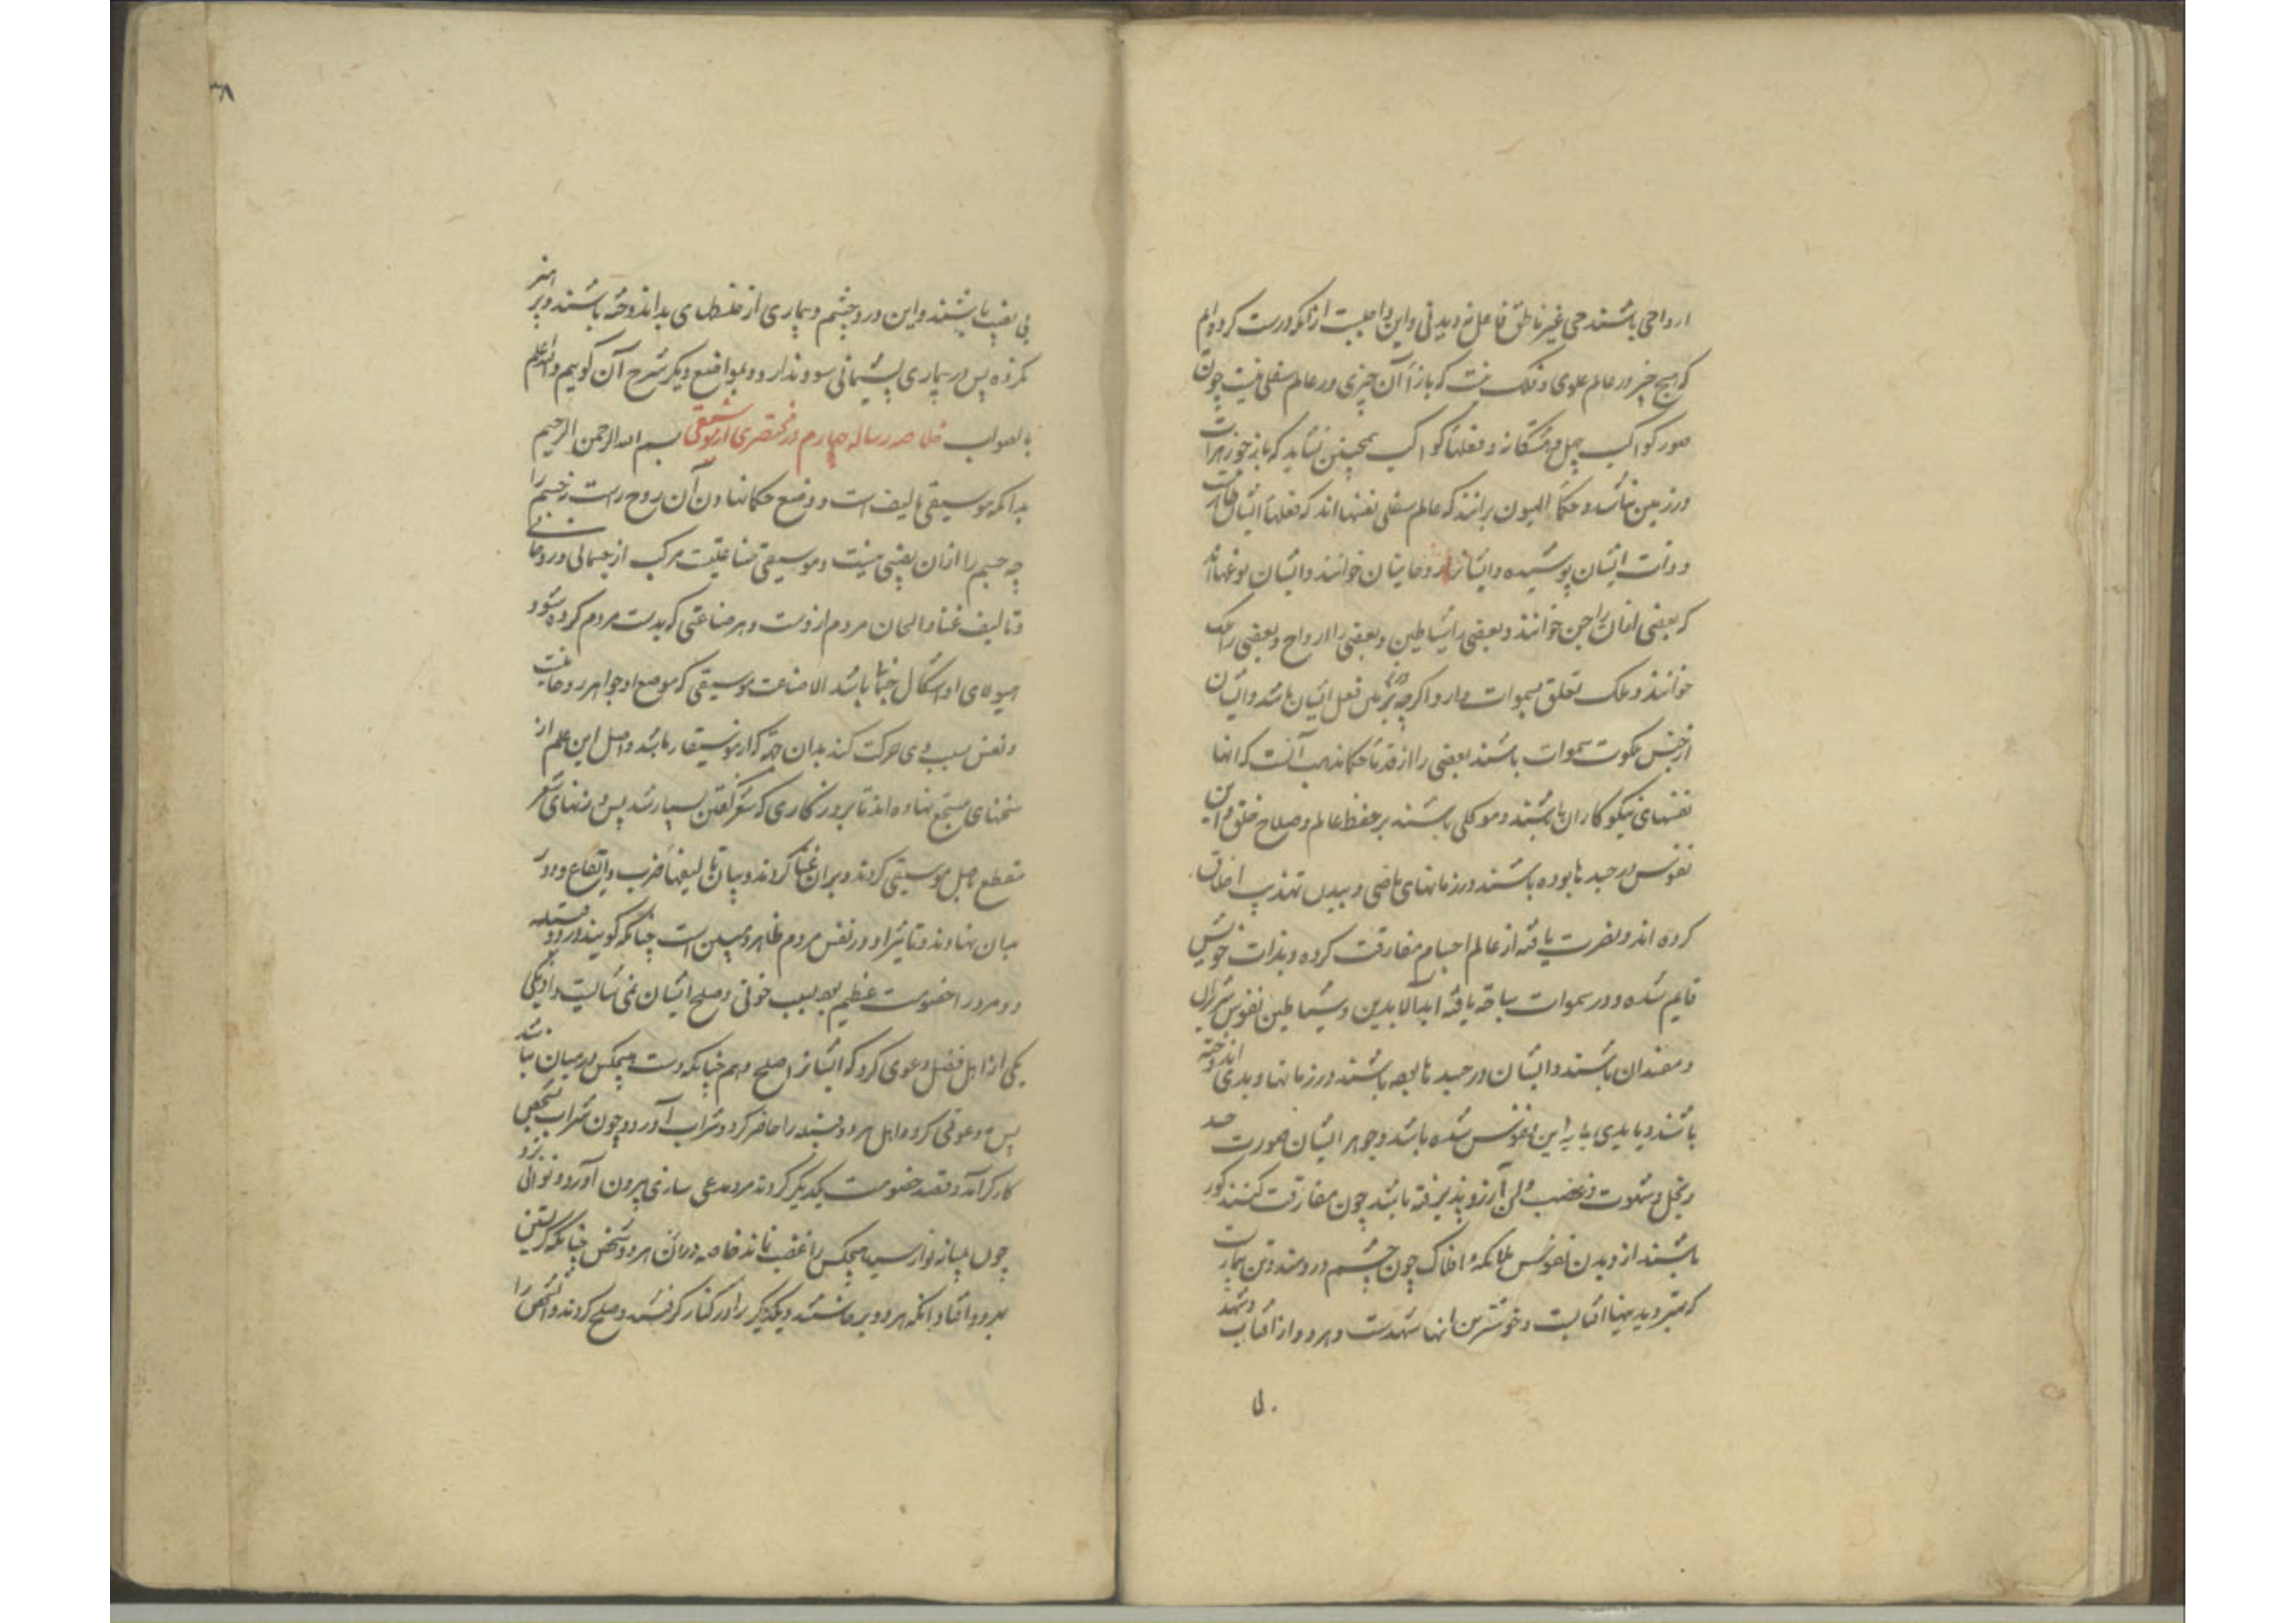 ارواحی باشند حی غیر ناطق فاعل نه دیدنی و این واجبست از آنکه درست کرده‌ایم
که هیچ چیز در عالم علوی و فلک نیست که بازاء آن چیزی در عالم سفلی نیست چون
صور کواکب چهل و هشتگانه و فعلهاء کواکب همچنین نشاید که باز خود زهرات
در زمین نباشد و حکماء الهیون برانند که عالم سفلی نفسها اند که فعلهاء ایشان ظاهرست
و ذات ایشان پوشیده و ایشانرا روحانیان خوانند و ایشان نوعها اند
که بعضی ازان را جن خوانند و بعضی را شیاطین و بعضی را ارواح و بعضی را ملک
خوانند و ملک تعلق بسموات دارد اگر چه در زمین فعل ایشان باشد و ایشان
از جنس ملکوت سموات باشند بعضی را از قدماء حکما مذهب آنست که انها
نفسهای نیکوکاران باشند و موکلی باشند بر حفظ عالم و صلاح خلق و این
نفوس در جسدها بوده باشند در زمانهای ماضی و بیدل تهذیب اخلاق
کرده اند و نصرت یافته از عالم اجسام مفارقت کرده و بذات خویش
قایم شده و در سموات سیاحه یافته ابد الابدین و شیاطین نفوس شریران
و مفسدان باشند و ایشان در جسدها بوده باشند در زمانها و بدی اندوخته
باشند و با بدی این نفوس شده باشد و جوهر ایشان صورت حسد
و بخل و شهوت و غضب و آرزو پذیرفته باشد چون مفارقت کنند کور
باشند از دیدن نفوس ملائکه و افلاک چون چشم دردمند و تن بیمار
که بهتر دیدنیها آفتابست و خوشترین انها شهدست و هر دو از آفتاب و شهد
لی
۳۸
بی نصیب باشند و این درد چشم و بیماری از خلطهای بد اندوخته باشند و پرهیز
نکرده پس در بیماری پشیمانی سود ندارد و بمواضع دیگر شرح آن گوییم والله اعلم
بالصواب خلاصه رساله چهارم در مختصری از موسیقی بسم الله الرحمن الرحیم
بدانکه موسیقی تألیف است و وضع حکما نهادن آن روح راست نه جسم را
چه جسم را ازان نصیبی نیست و موسیقی صناعتیست مرکب از جسمانی و روحانی
و تالیف غنا و الحان مردم ازوست و هر صناعتی که بدست مردم کرده شود
هیولای او اشکال جسمانی باشد الا صناعت موسیقی که موضع او جواهر روحانیست
و نفس بسبب وی حرکت کند بدان جهة که از موسیقار باشد و اصل این علم از
سخنهای مسجع نهاده اند تا بروزگاری که شعر گفتن بسیار شد پس وزنهای شعر
مقطع اصل موسیقی کردند و بران غنا کردند و بیان تالیفها ضرب و ایقاع و دور
بدان نهادند و تاثیر او در نفس مردم ظاهر و مبین است چنانکه گویند در دو قبیله
دو مرد را خصومت عظیم بود بسبب خونی و صلح ایشان نمی شایست دادن یکی
یکی از اهل فضل دعوی کرد که ایشانرا صلح دهم چنانکه دست هیچکس در میان نباشد
پس دعوتی کرد و اهل هر دو قبیله را حاضر کرد و شراب آورد و چون شراب شخص
کارگر آمد و قصد خصومت یکدیگر کردند مرد مدعی سازی بیرون آورد و نوائی بزد
چون نواز رسید هیچکس را غضب نماند خاصه دران هر دو شخص چنانکه گریستن
بر دو افتاد وانگه هر دو برخاستند و یکدیگر را در کنار گرفتند و صلح کردند و آن شخص را